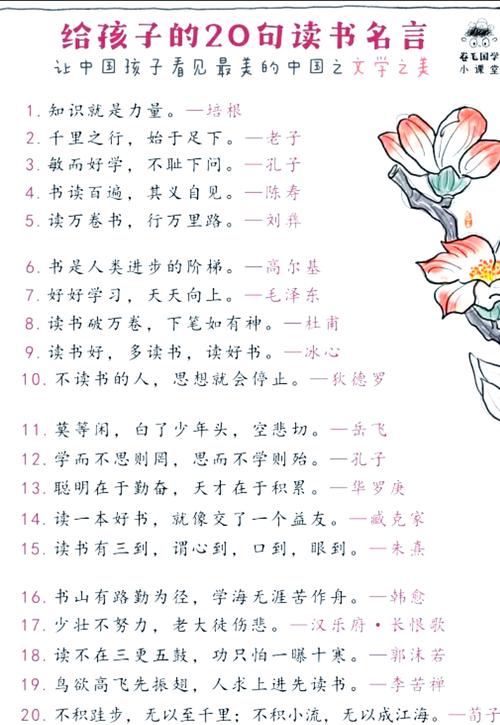 给孩子的20句读书名言
卷毛国学
小课堂
让中国孩子看见最美的中国之文学之美
1. 知识就是力量。—培根
2. 千里之行，始于足下。—老子
3. 敏而好学，不耻下问。—孔子
4. 书读百遍，其义自见。—陈寿
5. 读万卷书，行万里路。—刘彝
6. 书是人类进步的阶梯。—高尔基
7. 好好学习，天天向上。—毛泽东
8. 读书破万卷，下笔如有神。—杜甫
9. 读书好，多读书，读好书。—冰心
10. 不读书的人，思想就会停止。—狄德罗
11. 莫等闲，白了少年头，空悲切。—岳飞
12. 学而不思则罔，思而不学则殆。—孔子
13. 聪明在于勤奋，天才在于积累。—华罗庚
14. 读一本好书，就像交了一个益友。—臧克家
15. 读书有三到，谓心到，口到，眼到。—朱熹
16. 书山有路勤为径，学海无涯苦作舟。—韩愈
17. 少壮不努力，老大徒伤悲。—汉乐府·长恨歌
18. 读不在三更五鼓，功只怕一曝十寒。—郭沫若
19. 鸟欲高飞先振翅，人求上进先读书。—李苦禅
20. 不积跬步，无以至千里；不积小流，无以成江海。—荀子